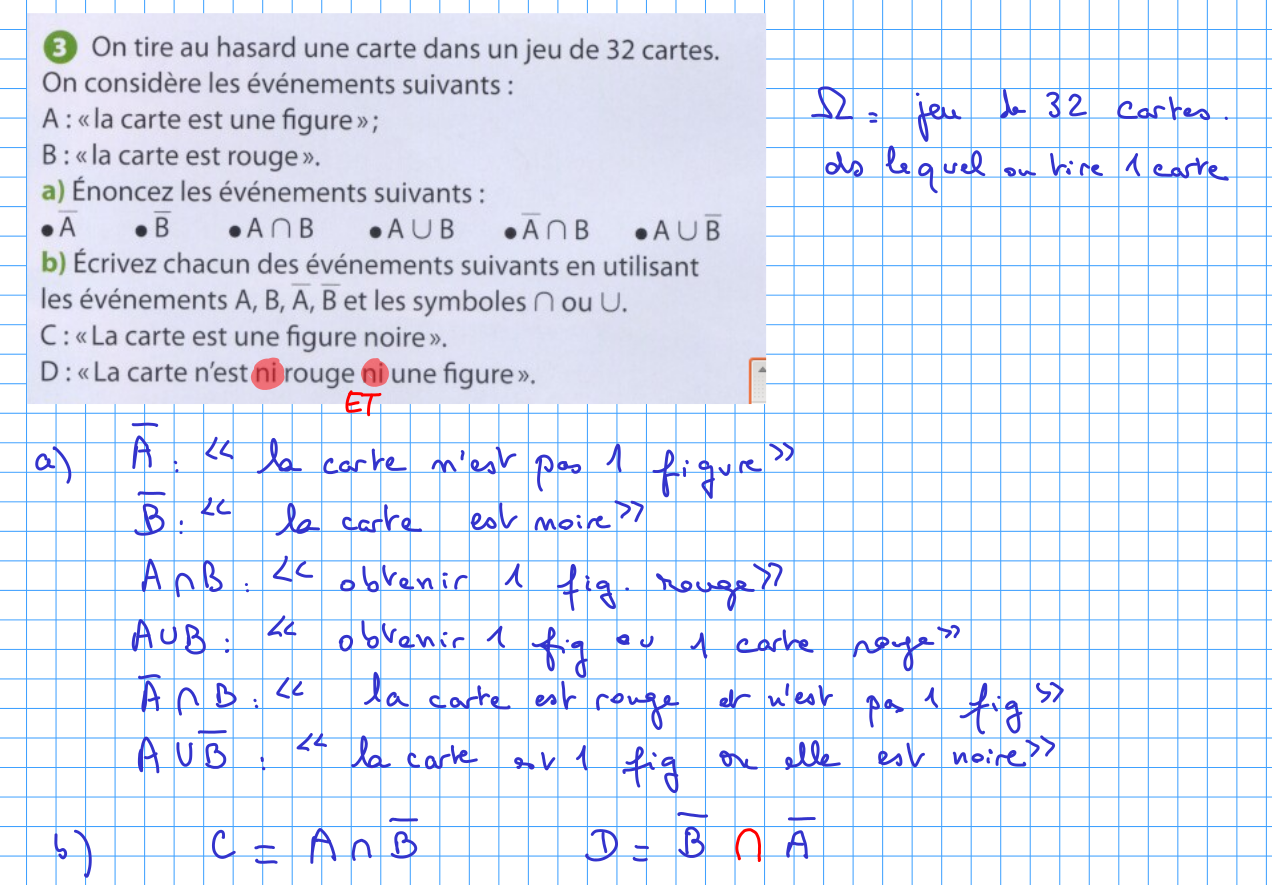 3 On tire au hasard une carte dans un jeu de 32 cartes.
On considère les événements suivants :
A : « la carte est une figure » ;
B : « la carte est rouge ».
a) Énoncez les événements suivants :
• A̅ • B̅ • A ∩ B • A ∪ B • A̅ ∩ B • A ∪ B̅
b) Écrivez chacun des événements suivants en utilisant
les événements A, B, A̅, B̅ et les symboles ∩ ou ∪.
C : « La carte est une figure noire ».
D : « La carte n'est ni rouge ni une figure ».
ET
Ω = jeu de 32 cartes.
ds lequel on tire 1 carte
a) A̅ : << la carte n'est pas 1 figure >>
B̅ : << la carte est noire >>
A ∩ B : << obtenir 1 fig. rouge >>
A ∪ B : << obtenir 1 fig ou 1 carte rouge >>
A̅ ∩ B : << la carte est rouge et n'est pas 1 fig >>
A ∪ B̅ : << la carte est 1 fig ou elle est noire >>
b) C = A ∩ B̅ D = B̅ ∩ A̅